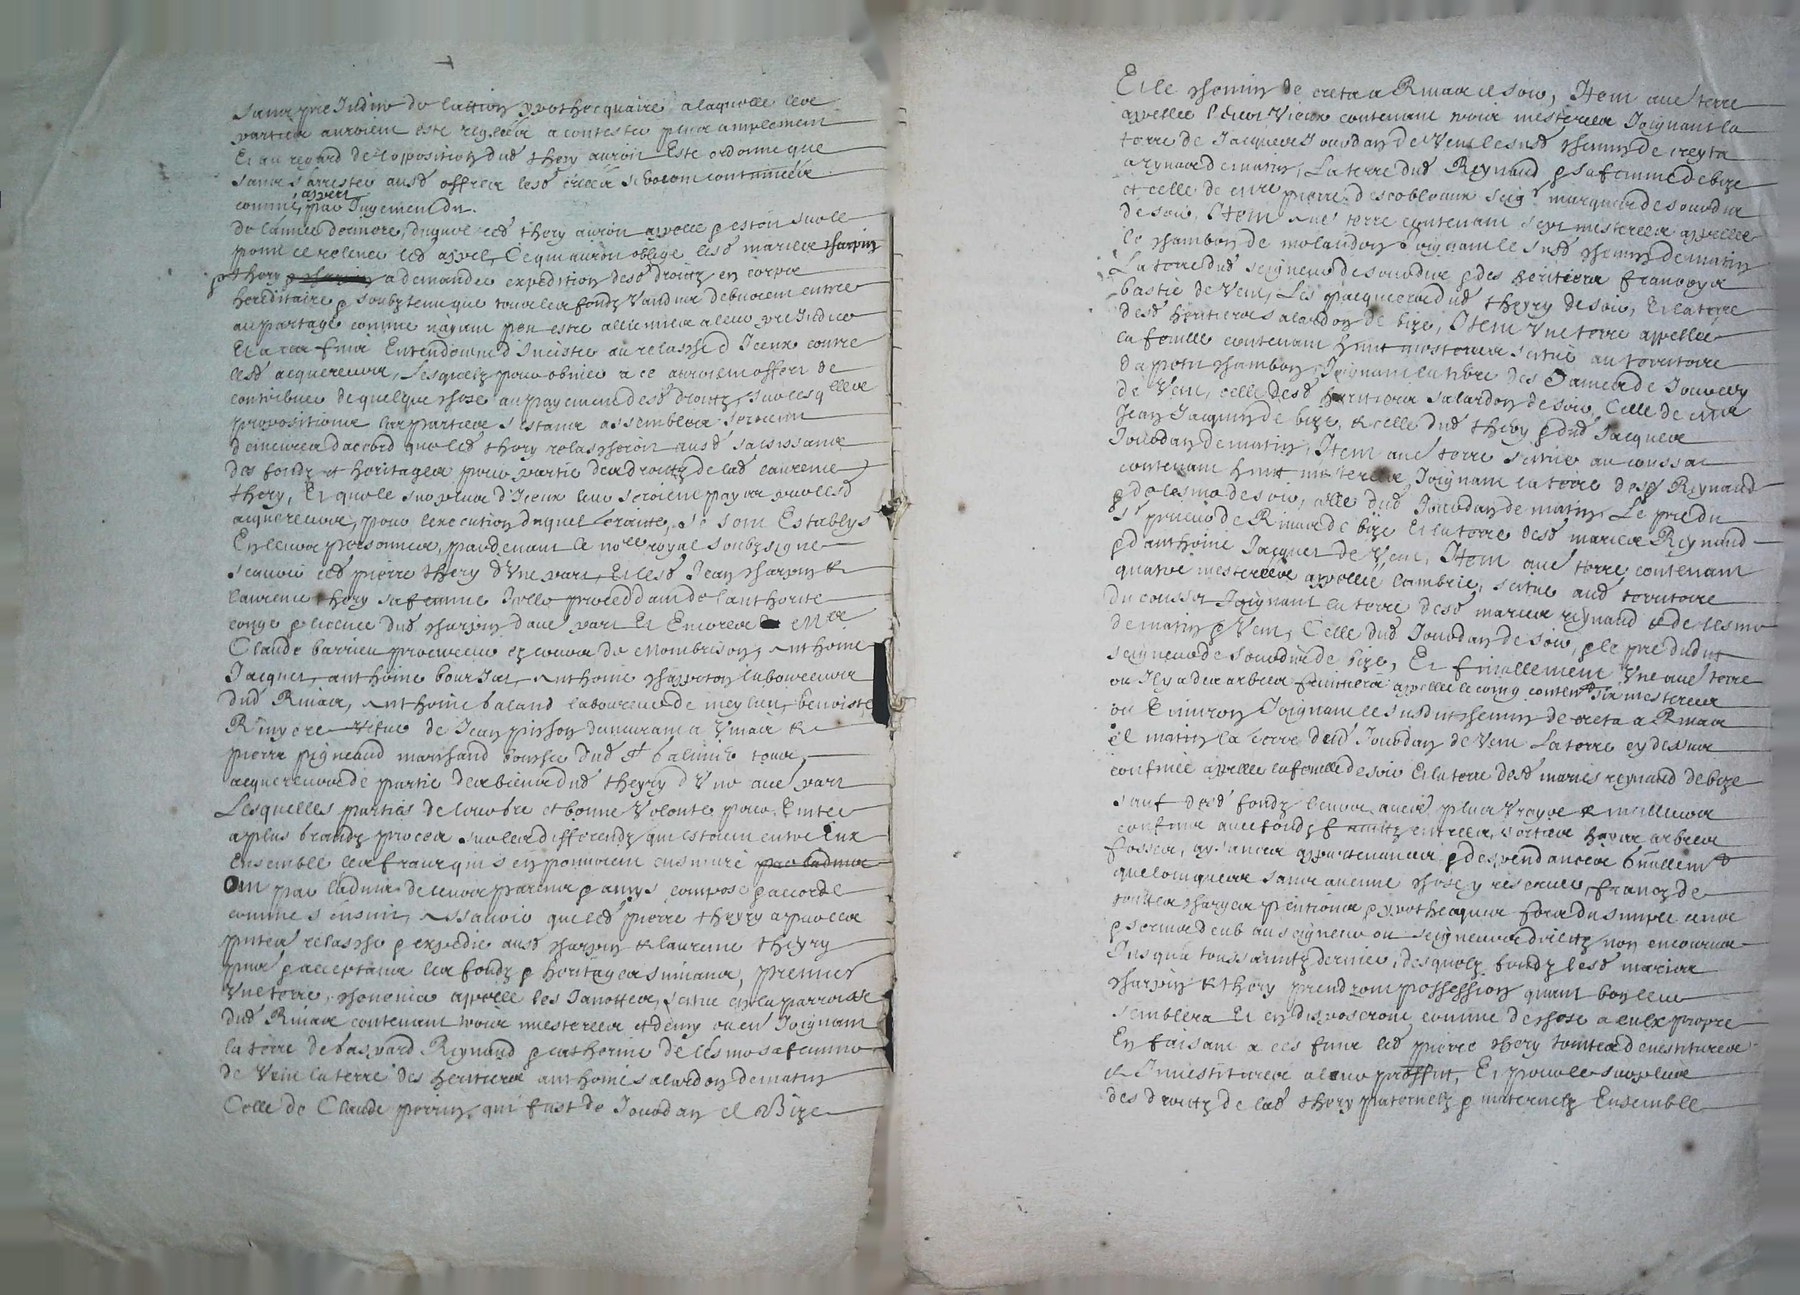 sans preIudice de laction ypothecquaire, a laquelle lesd
parties auroient esté reglées a contester plus amplement
Et au regard de lopposition dud thery auroit Esté ordonné que
sans sarrester ausd offres lesd criées seroient continuées
comme appert par Iugement du
de lannée derniere, duquel led thery auroit appellé & estoit sur le
point de relever led appel, Ce qui auroit obligé lesd mariés charpin
& thery a demander expedition desd droitz en corps
hereditaire & soubztenu que tous les fondz vandus debvoient entrer
au partage comme nayant peu estre alliennés a leur preIudice
Et a ces fins Entendoient d'Incister au relasche d'Iceux contre
lesd acquereurs, lesquelz pour obvier a ce auroient offert de
contribuer de quelque chose au payement desd droitz, sur lesquelles
propositions les parties sestant assemblées seroient
demeurées daccord que led thery relascheroit ausd
des fondz & heritages pour partie des droitz de lad laurence
thery, Et que le surplus d'Iceux leur seroient payés par lesd
acquereurs, pour lexecution duquel traitté, se sont Establys
En leurs personnes, pardevant le no.re royal soubzsigné
scavoir led pierre thery d'Une part, Et lesd Jean charpin &
laurence thery sa femme Icelle proceddant de lauthorité
congé & licence dud charpin d'autre part Et Encores M.re
Claude barrieu procureur ez cours de Montbrison, Anthoine
Jacquet, anthoine bourJat, Anthoine chappton laboureurs
dud Rivas, Anthoine baland laboureur de meylieu, benoiste
Rivyere vefve de Jean pisson demeurant a Unias &
pierre pigneaud marchand boucher dud St balmier tous
acquereurs de partie des biens dud theyry d'Une autre part
Lesquelles parties de leur libre et bonne Volonté pour Eviter
a plus grandz proces sur les differendz qui estoient entre Eux
Ensemble les frais qui s'en pouvoient ensuivre
Ont par ladvis de leurs parens & amys composé & accordé
comme s'ensuit, Assavoir que led pierre theyry a par ces
putes relasché & expedié ausd charpin & laurence theyry
puts & acceptans les fondz & heritages suivans, premier
Une terre, appellé les Janottes, scitué en la parroisse
dud Rivas contenant trois mesterées & demy ou en Joignant
la terre de gaspard Reynaud & catherine de lesmo sa femme
de Vent la terre des heritiers anthoine salardon de matin
Celle de Claude perrin, qui fust de Jourdan et Bize
Et le chemin de creta a Rivas et soir, Item une terre
appellée contenant trois mesterées Joignant la
terre de Jacques Jourdan de Vent led chemin de creyta
a ryvas de matin, La terre dud Reynaud & sa femme de bize
et celle de M.re pierre descobleaux seig.r marquis de sourdis
de soir, Item Une terre contenant sept mesterées appellée
le chambon de molandon Joignant le susd chemin de matin
La terre dud seigneur de sourdis & des heritiers francoys
bastie de Vent, Les dud theyry de soir, Et la terre
desd heritiers salardon de bize, Item Une terre appellée
la fouille contenant huit mesterées scitué au territoire
du petit chambon, Joignant la terre des Dames de Jourcey
de Vent, celle desd heritiers salardon de soir, Celle de M.re
Jean Jacquin de bize, & celle dud thery & dud Jacques
Jourdan de matin, Item une terre scitué au coussat
contenant huit mesterées, Joignant la terre desd Reynaud
& de lesmo de soir, celle dud Jourdan de matin, Le pre du
s.r prieur de Rivas de bize Et la terre desd mariés Reynaud
& d'anthoine Jacquet de Vent, Item une terre contenant
quatre mesterées appellé lombrie, scitué aud territoire
du cousset Joignant la terre desd mariés reynaud & de lesmo
de matin & Vent, Celle dud Jourdan de soir, & le pre dudit
seigneur de sourdis de bize, Et finallement Une autre terre
ou Il y a des arbres fruittiers appellé le coing conten.t six mesterées
ou Environ Joignant le susdit chemin de creta a Rivas
et matin la terre dud Jourdan de Vent La terre cy dessus
confinée appellée la fouille de soir Et la terre desd mariés reynaud de bize
sauf desd fondz leurs autres plus vrays & meilleurs
confins avec fondz fruitz entrées, sorties hayes arbres
fosses, aysances appartenances & despendances
quelconques sans aucune chose y reserver, francz de
touttes charges pentions & ypothecques fors du simple cens
& servis deub au seigneur ou seigneurs directz non encourus
Jusqua toussaintz dernier, desquelz fondz lesd mariés
charpin & thery prendront possession quant bon leur
semblera Et en disposeront comme de chose a eulx propre
En faisant a ces fins led pierre thery touttes devestitures
& Investitures a leur proffit, Et pour le surplus
des droitz de lad thery paternelz & maternelz Ensemble